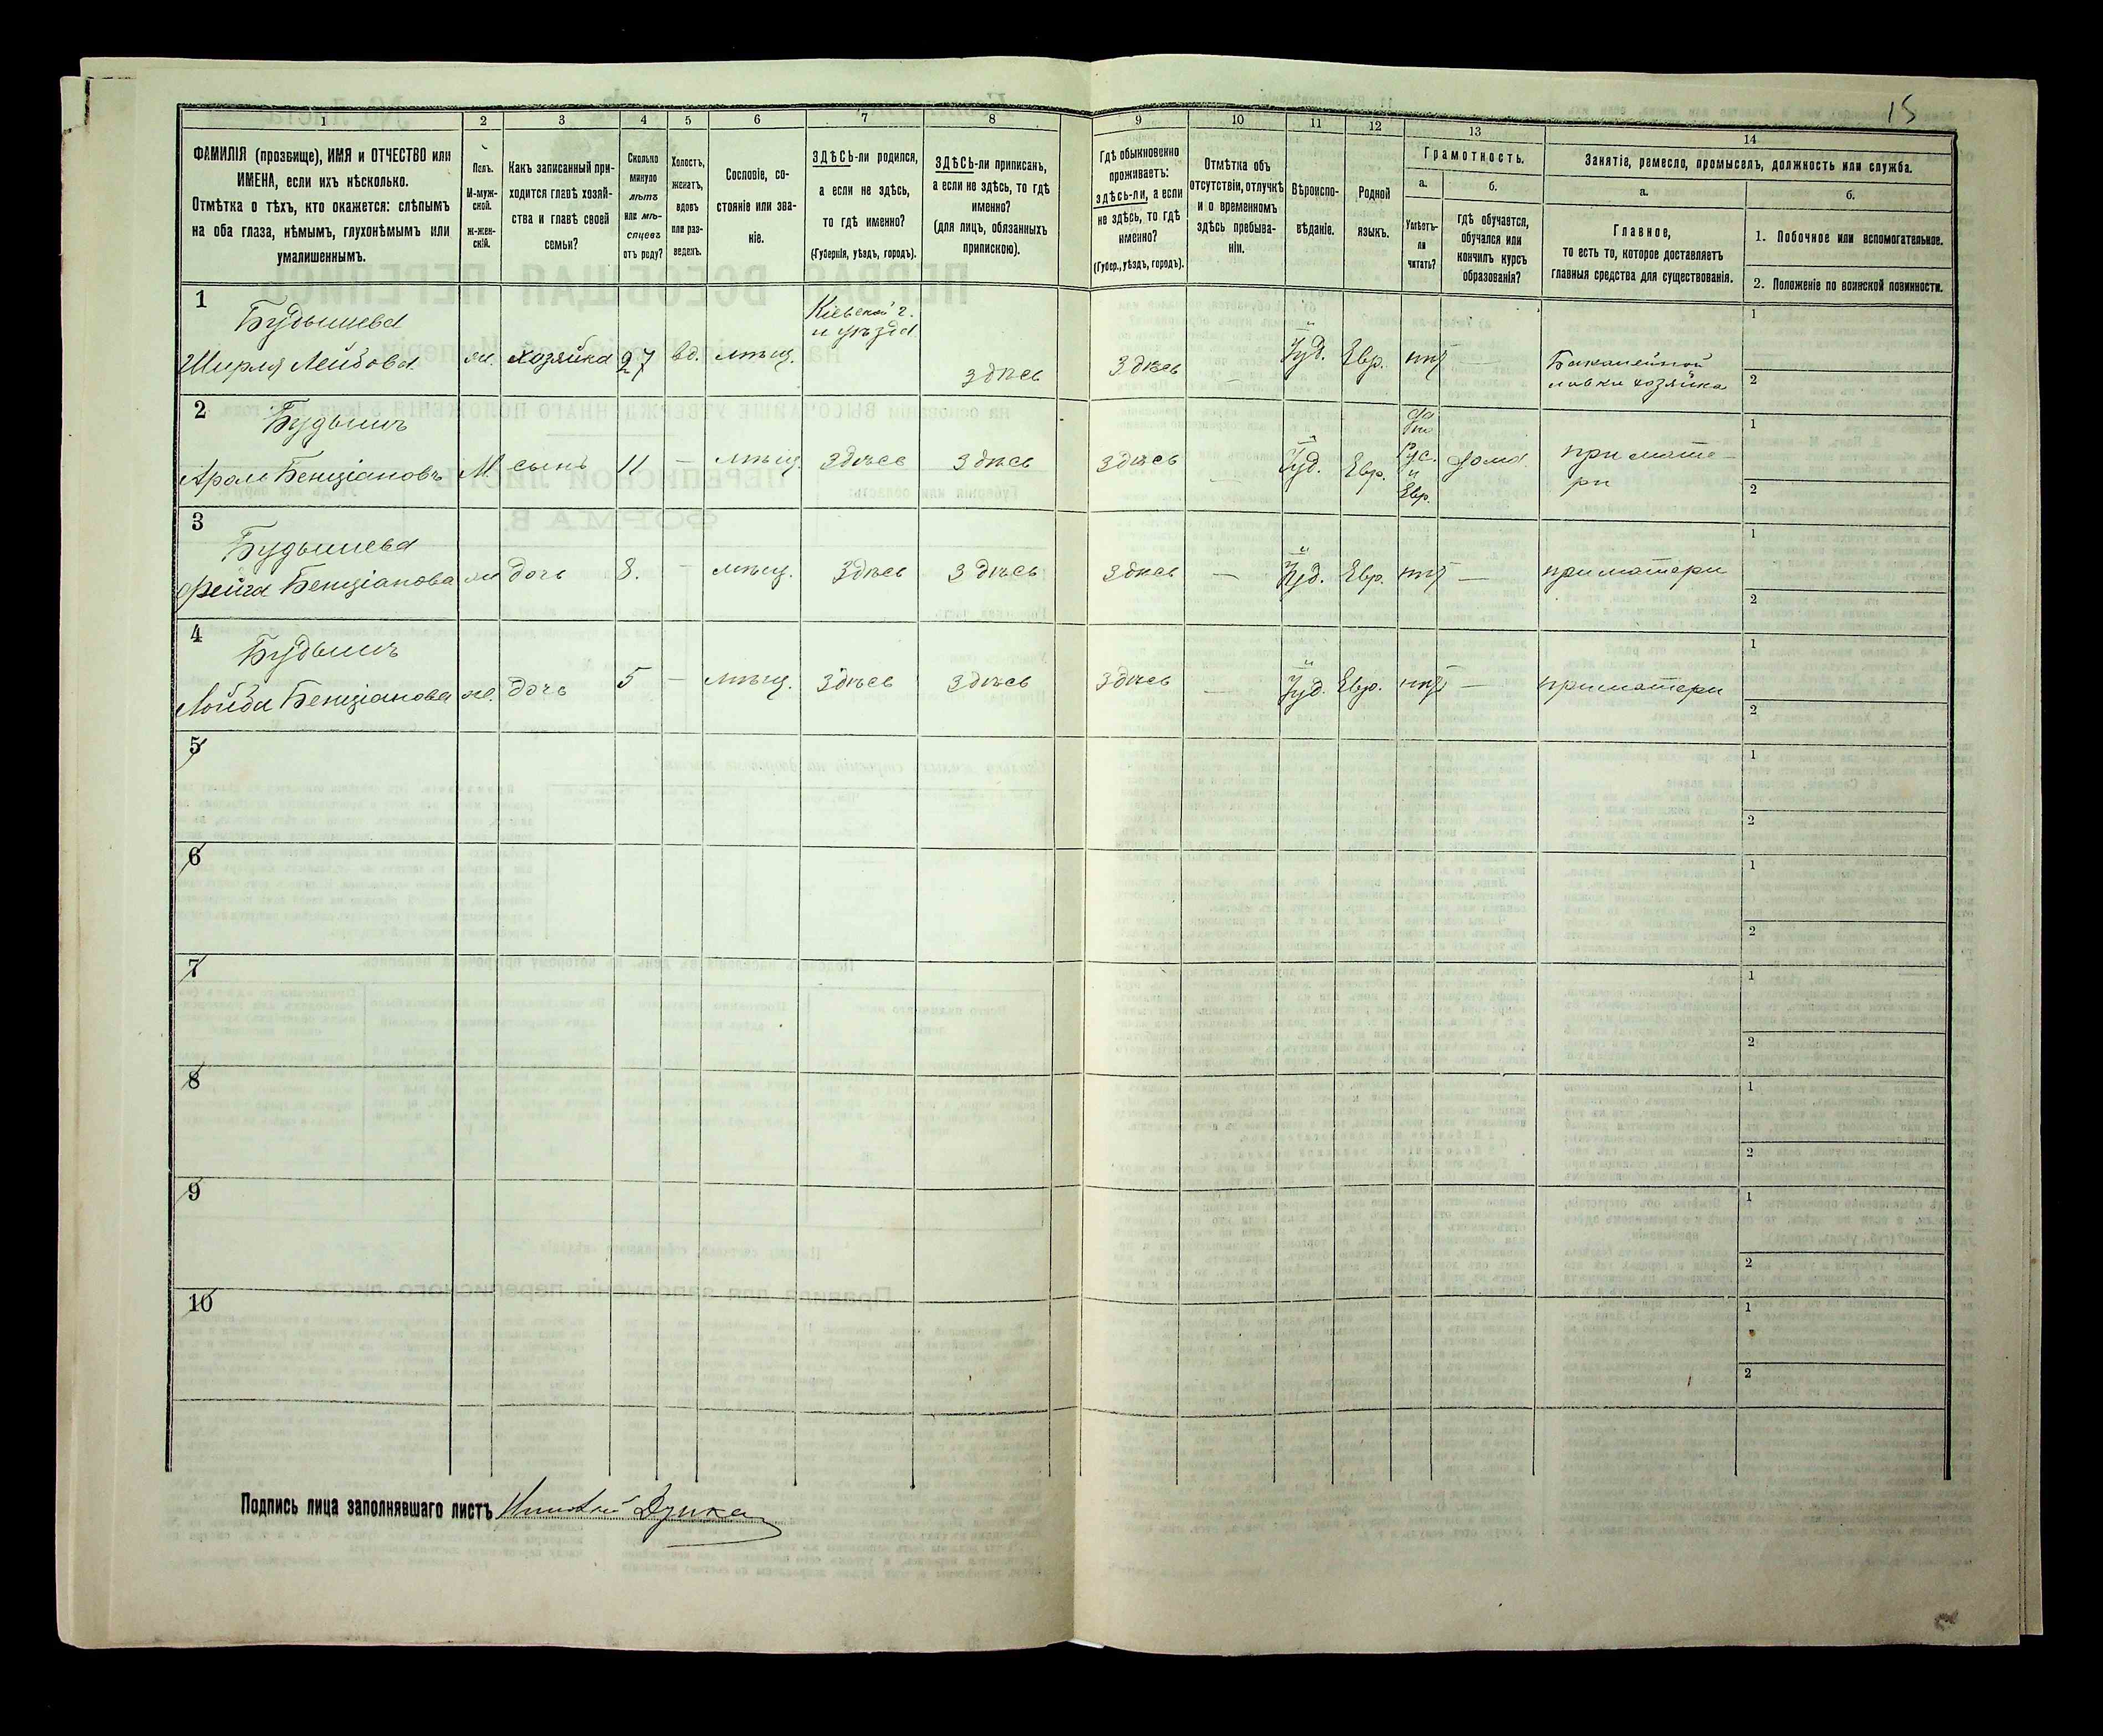 15
1 2 3 4 5 6 7 8 9 10 11 12 13 14
ФАМИЛІЯ (прозвище), ИМЯ и ОТЧЕСТВО или
ИМЕНА, если ихъ нѣсколько.
Отмѣтка о тѣхъ, кто окажется: слѣпымъ
на оба глаза, нѣмымъ, глухонѣмымъ или
умалишеннымъ.
Полъ.
М-муж-
ской.
ж-жен-
скій.
Какъ записанный при-
ходится главѣ хозяй-
ства и главѣ своей
семьи?
Сколько
минуло
лѣтъ
или мѣ-
сяцевъ
отъ роду?
Холостъ,
женатъ,
вдовъ
или раз-
веденъ.
Сословіе, со-
стояніе или зва-
ніе.
ЗДѢСЬ-ли родился,
а если не здѣсь,
то гдѣ именно?
(Губернія, уѣздъ, городъ).
ЗДѢСЬ-ли приписанъ,
а если не здѣсь, то гдѣ
именно?
(для лицъ, обязанныхъ
припискою).
Гдѣ обыкновенно
проживаетъ:
здѣсь-ли, а если
не здѣсь, то гдѣ
именно?
(Губер., уѣздъ, городъ).
Отмѣтка объ
отсутствіи, отлучкѣ
и о временномъ
здѣсь пребыва-
ніи.
Вѣроиспо-
вѣданіе.
Родной
языкъ.
Грамотность.
а.
Умѣетъ-
ли
читать?
б.
гдѣ обучается,
обучался или
кончилъ курсъ
образованія?
Занятіе, ремесло, промыселъ, должность или служба.
а.
Главное,
то есть то, которое доставляетъ
главныя средства для существованія.
б.
1. Побочное или вспомогательное.
2. Положеніе по воинской повинности.
1
Будышева
Ширля Лейбова
ж. хозяйка 27 вд. мѣщ.
Кіевской г.
и уѣзда
здѣсь здѣсь — Іуд. Евр. нѣтъ —
Бакалейной
лавки хозяйка
1
2
2
Будышъ
Арон Бенціановъ
М. сынъ 11 — мѣщ. здѣсь здѣсь здѣсь — Іуд. Евр.
да
по
Рус.
и
Евр.
дома
при мате-
ри
1
2
3
Будышева
Фейга Бенціанова
ж. дочь 8. — мѣщ. здѣсь здѣсь здѣсь — Іуд. Евр. нѣтъ — при матери
1
2
4
Будышъ
Бенціанова
ж. дочь 5 — мѣщ. здѣсь здѣсь здѣсь — Іуд. Евр. нѣтъ — при матери
1
2
5
1
2
6
1
2
7
1
2
8
1
2
9
1
2
10
1
2
Подпись лица заполнявшаго листъ